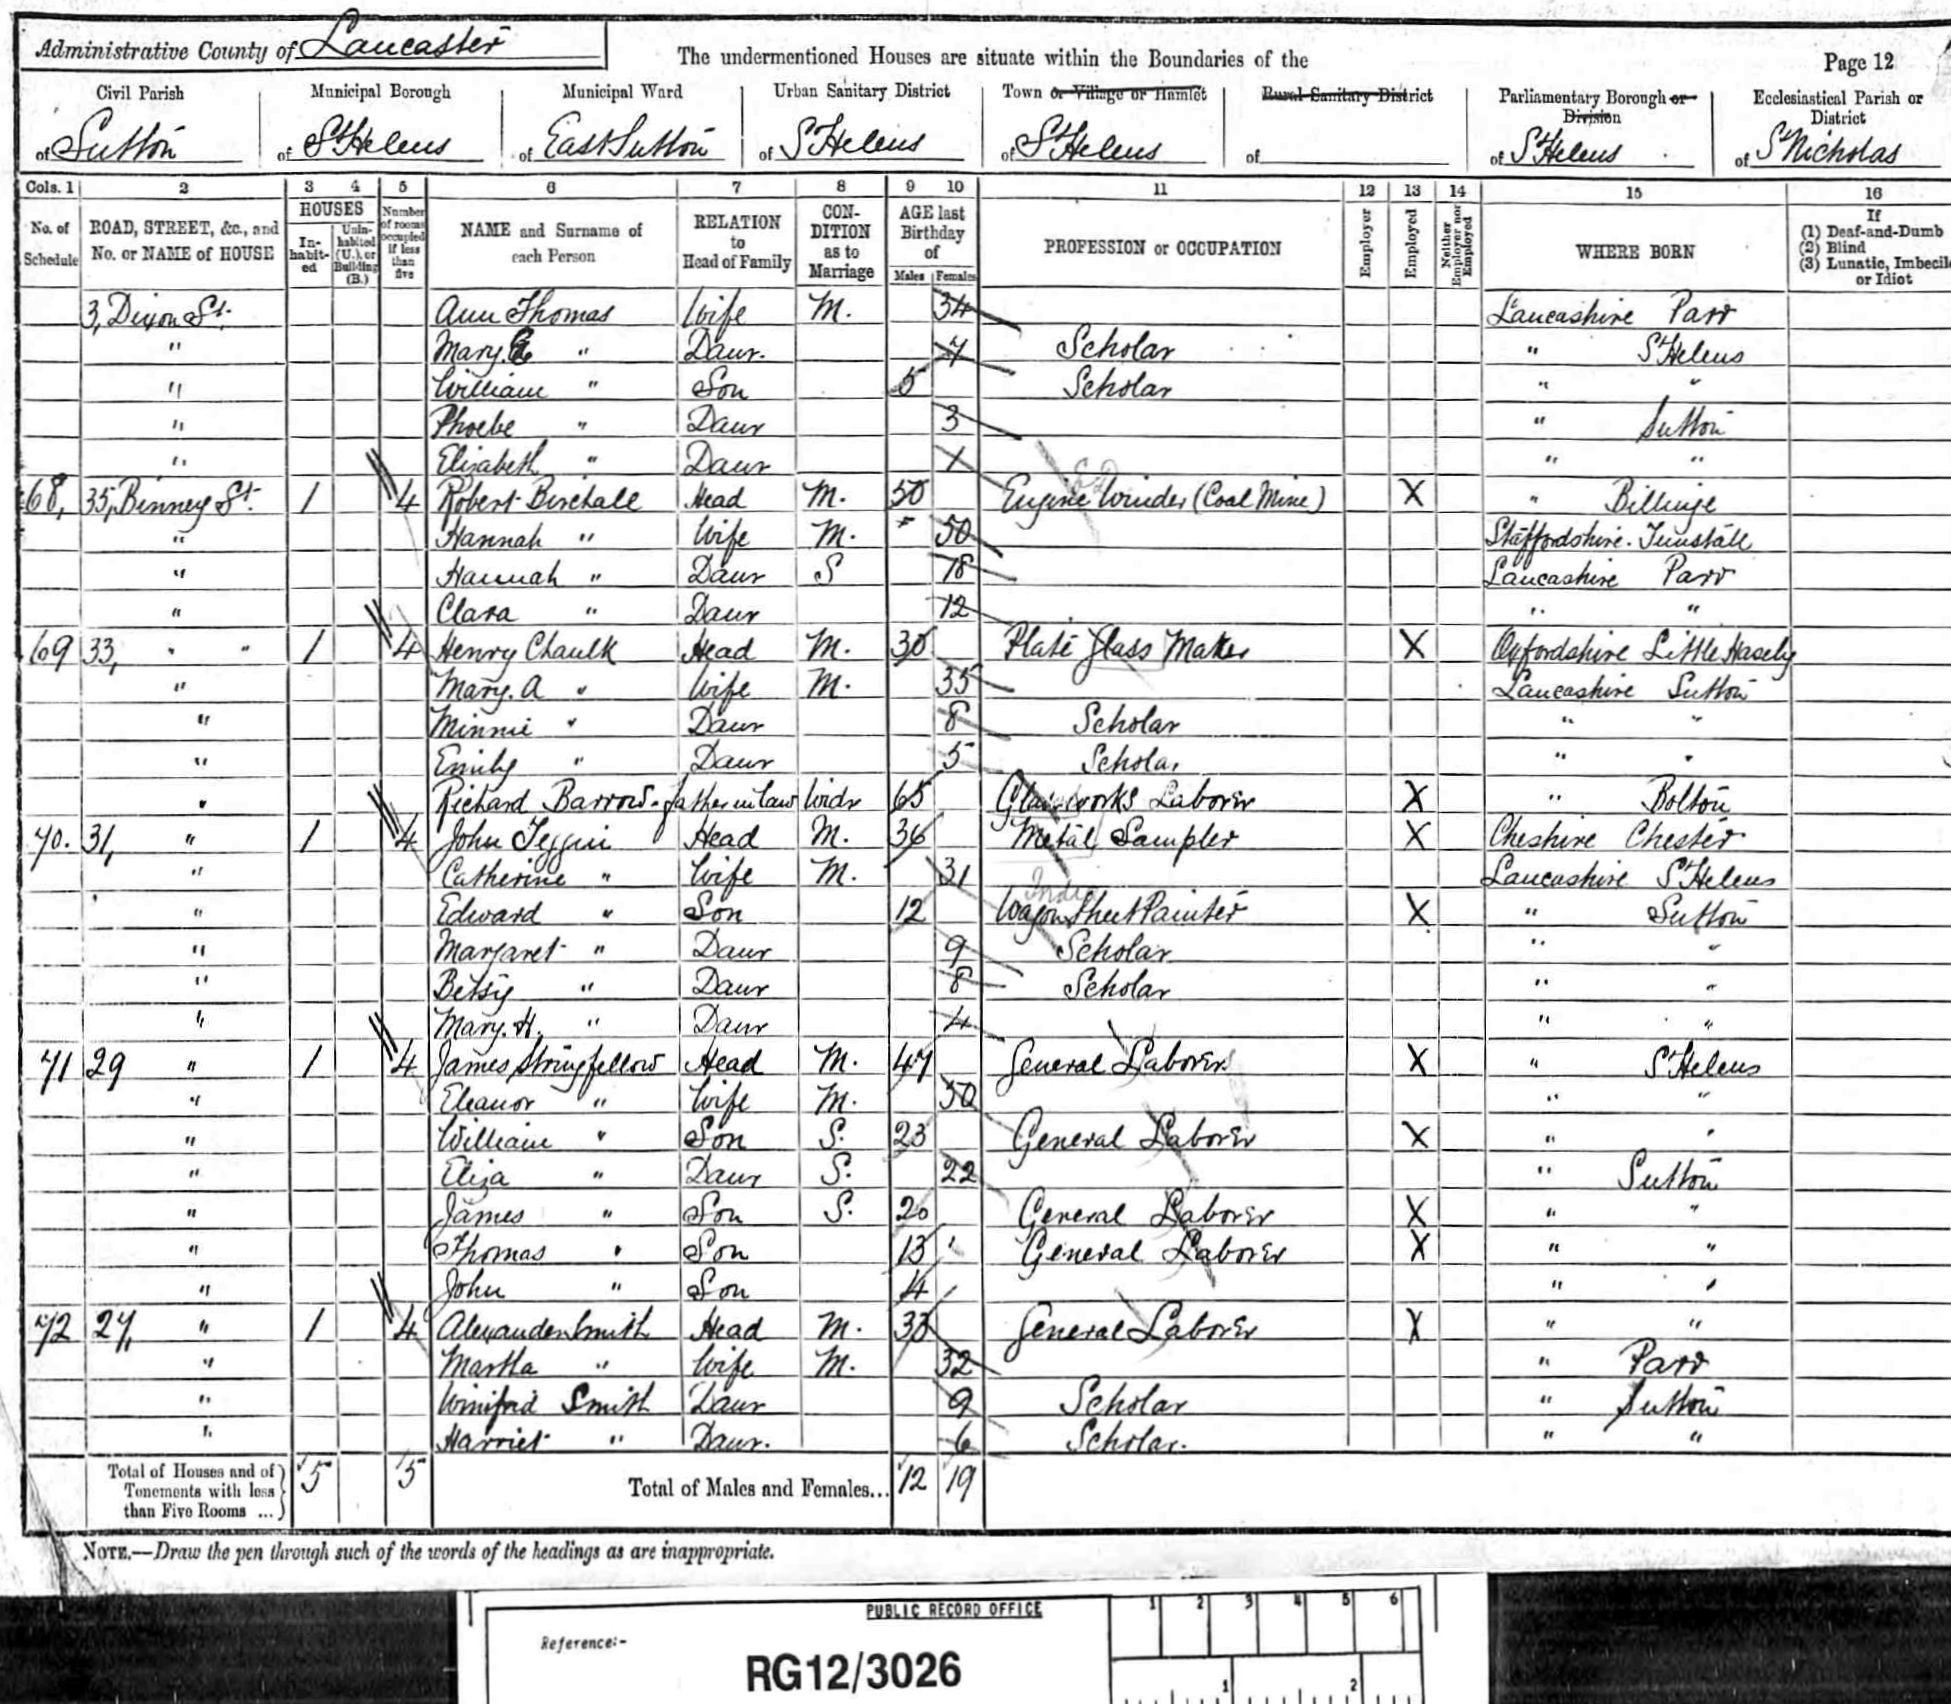 Administrative County of Lancaster
The undermentioned Houses are situate within the Boundaries of the
Page 12
Civil Parish Municipal Borough Municipal Ward Urban Sanitary District Town or Village or Hamlet Rural Sanitary District Parliamentary Borough or Division Ecclesiastical Parish or District
of Sutton of St Helens of East Sutton of St Helens of St Helens of of St Helens of St Nicholas
Cols. 1 2 3 4 5 6 7 8 9 10 11 12 13 14 15 16
No. of Schedule ROAD, STREET, &c., and No. or NAME of HOUSE HOUSES In-habit-ed Unin-habited (U.), or Building (B.) Number of rooms occupied if less than five NAME and Surname of each Person RELATION to Head of Family CON-DITION as to Marriage AGE last Birthday of Males Females PROFESSION or OCCUPATION Employer Employed Neither Employer nor Employed WHERE BORN If (1) Deaf-and-Dumb (2) Blind (3) Lunatic, Imbecile or Idiot
3, Dixon St. Ann Thomas Wife M. 34 Lancashire Parr
" Mary. E " Daur. 7 Scholar " St Helens
" William " Son 5 Scholar " "
" Phoebe " Daur 3 " Sutton
" Elizabeth " Daur 1 " "
68, 35, Binney St. 1 4 Robert Birchall Head M. 50 Engine Winder (Coal Mine) X " Billinge
" Hannah " Wife M. 50 Staffordshire. Tunstall
" Hannah " Daur S 18 Lancashire Parr
" Clara " Daur 12 " "
69 33, " " 1 4 Henry Chaulk Head M. 30 Plate Glass Maker X Oxfordshire Little Hasely
" Mary. A " Wife M. 35 Lancashire Sutton
" Minnie " Daur 8 Scholar " "
" Emily " Daur 5 Scholar " "
" Richard Barrow. father in law Widr 65 Glassworks Laborer X " Bolton
70. 31, " 1 4 John Teggin Head M. 36 Metal Sampler X Cheshire Chester
" Catherine " Wife M. 31 Lancashire St Helens
" Edward " Son 12 Wagon Sheet Painter X " Sutton
" Margaret " Daur 9 Scholar " "
" Betsy " Daur 8 Scholar " "
" Mary. H. " Daur 4 " "
71 29 " 1 4 James Stringfellow Head M. 47 General Laborer X " St Helens
" Eleanor " Wife M. 50 " "
" William " Son S. 23 General Laborer X " "
" Eliza " Daur S. 22 " Sutton
" James " Son S. 20 General Laborer X " "
" Thomas " Son 13 General Laborer X " "
" John " Son 4 " "
72 27, " 1 4 Alexander Smith Head M. 33 General Laborer X " "
" Martha " Wife M. 32 " Parr
" Winifrid Smith Daur 9 Scholar " Sutton
" Harriet " Daur. 6 Scholar. " "
Total of Houses and of Tenements with less than Five Rooms ... 5 5 Total of Males and Females... 12 19
NOTE.—Draw the pen through such of the words of the headings as are inappropriate.
PUBLIC RECORD OFFICE
1 2 3 4 5 6
Reference:-
RG12/3026
1 2